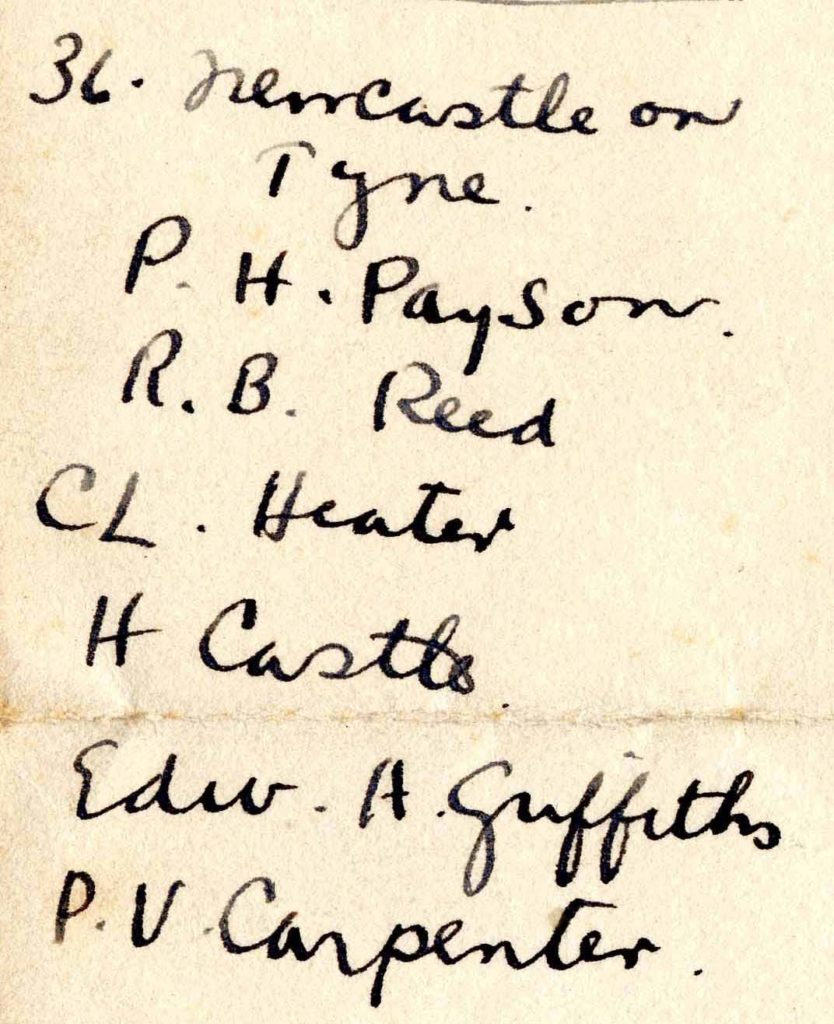 36. Newcastle on
Tyne.
P. H. Payson.
R. B. Reed
CL. Heater
H Castle.
Edw. A. Griffiths
P. V. Carpenter.